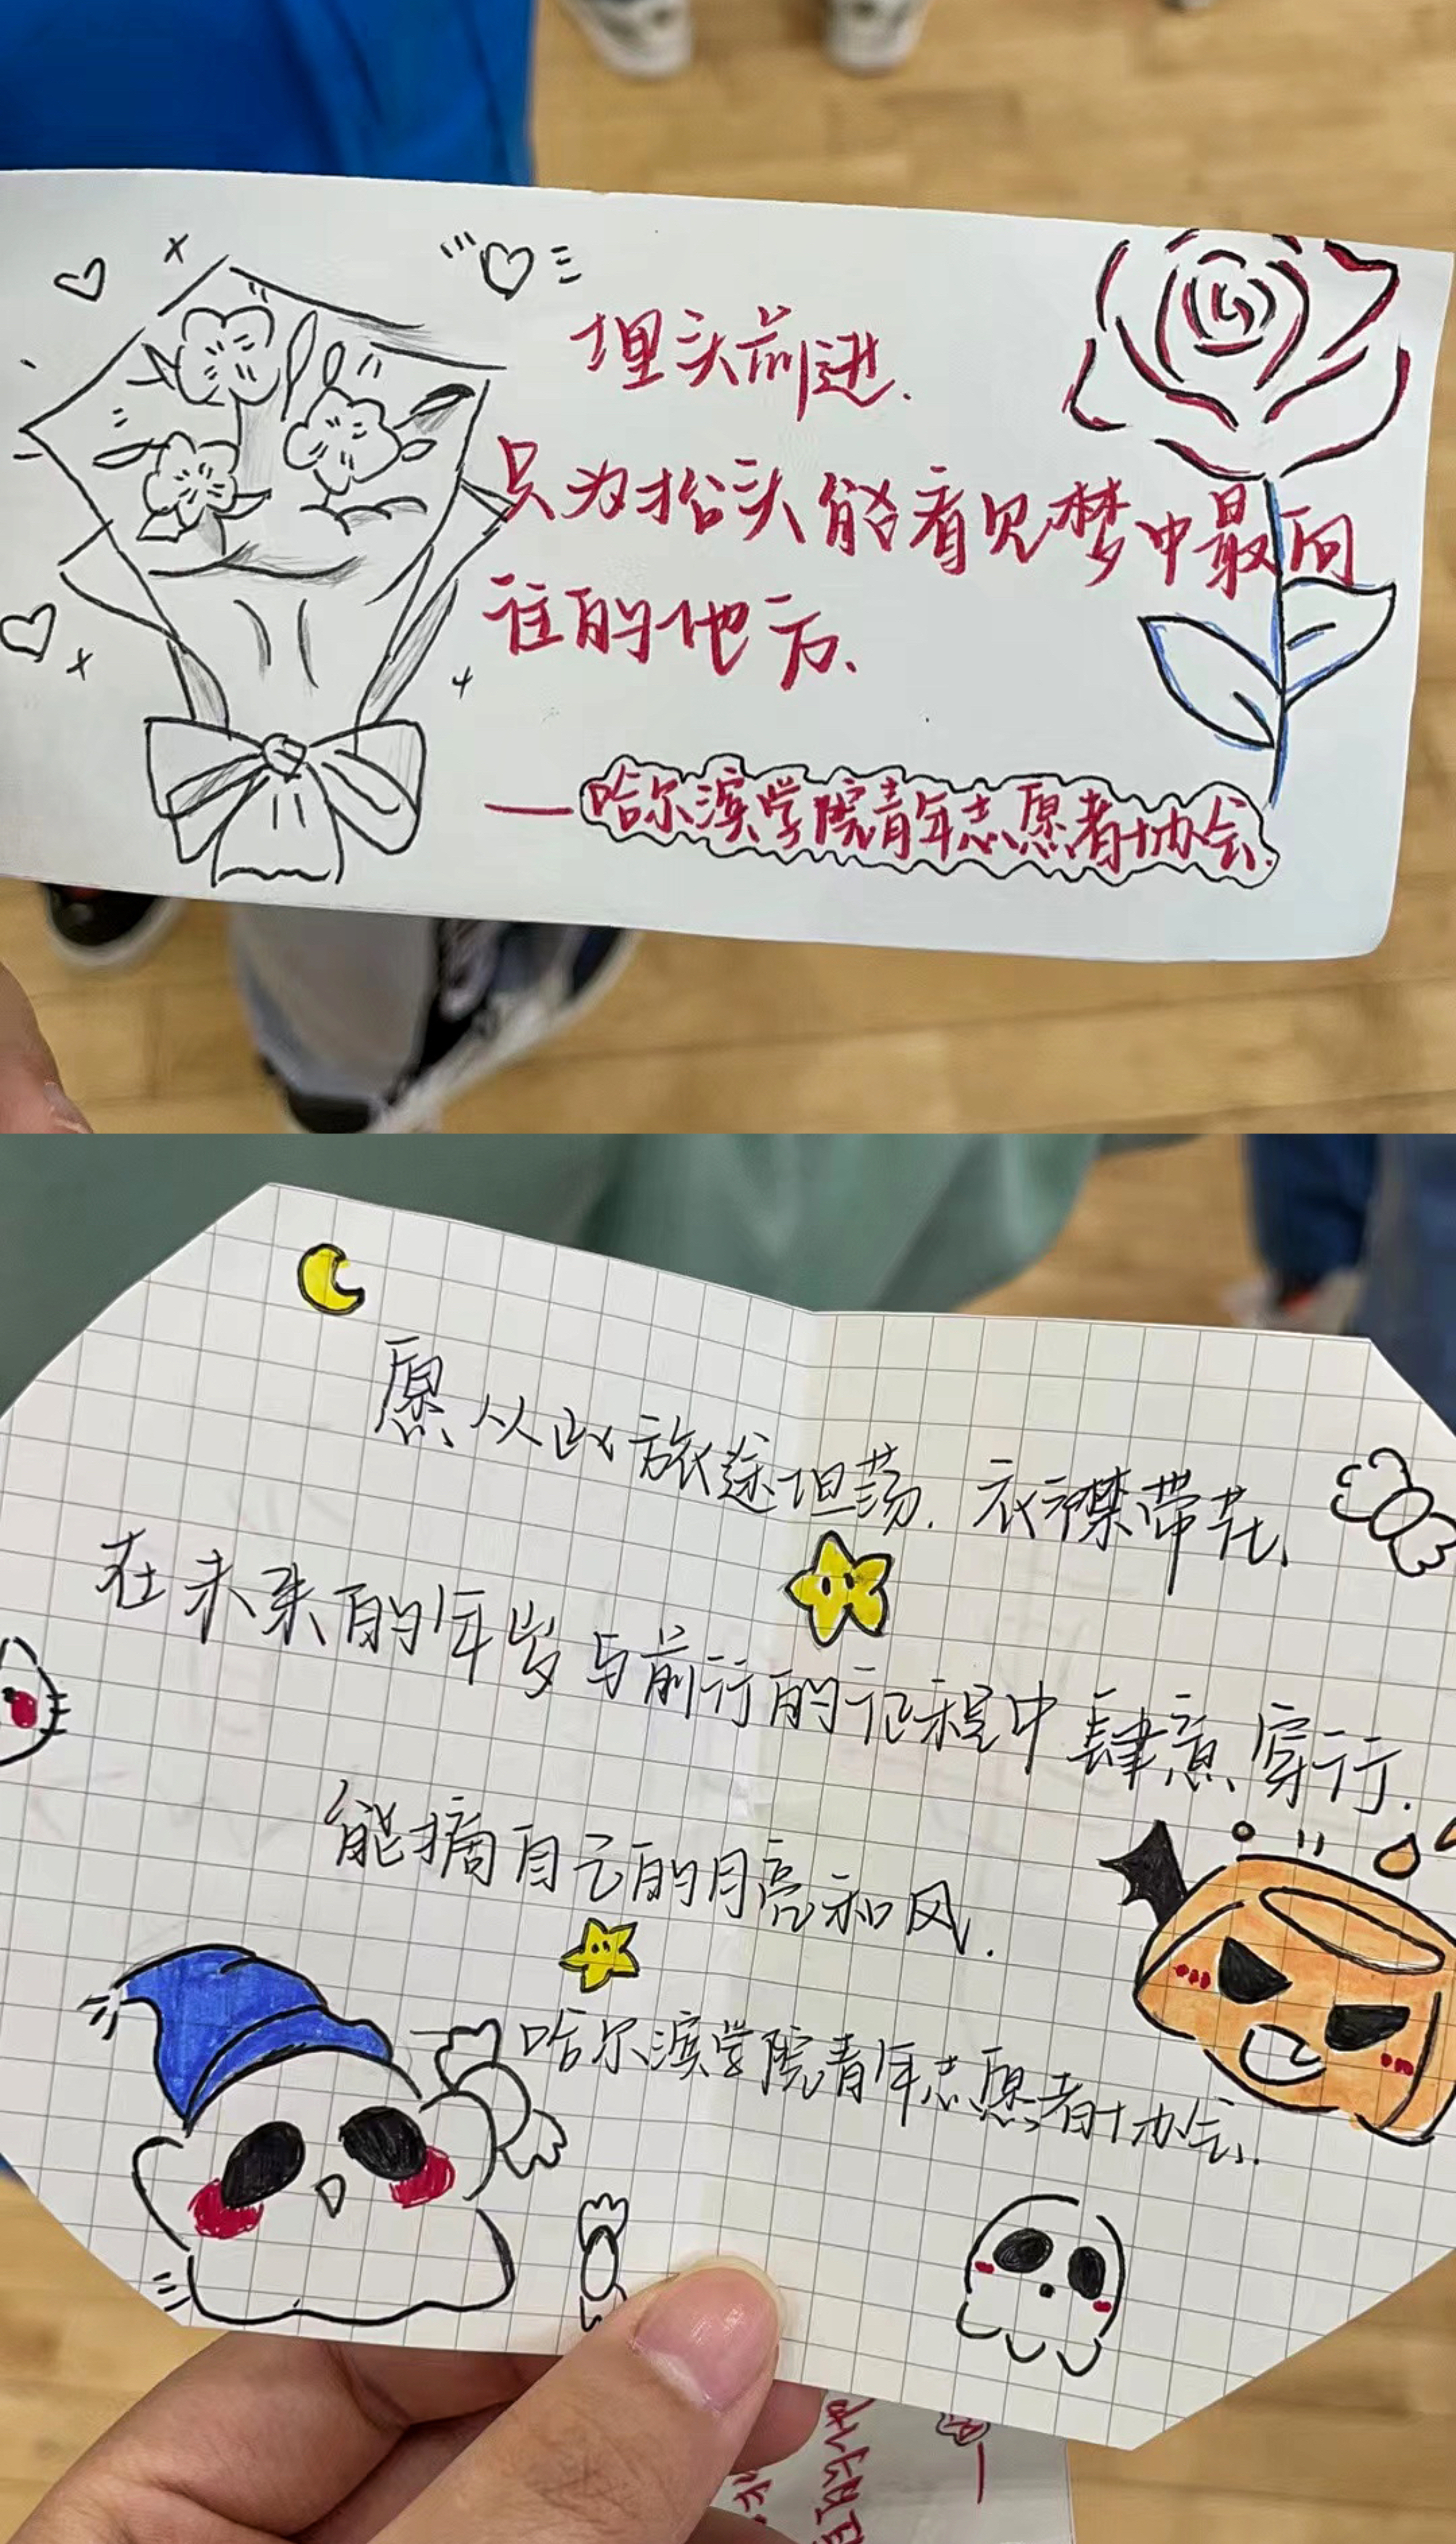 埋头前进.
只为抬头能看见梦中最向
往的地方、
—哈尔滨学院青年志愿者协会.
愿从此旅途坦荡.衣襟带花、
在未来的年岁与前行的征程中肆意穿行.
能摘自己的月亮和风.
—哈尔滨学院青年志愿者协会.